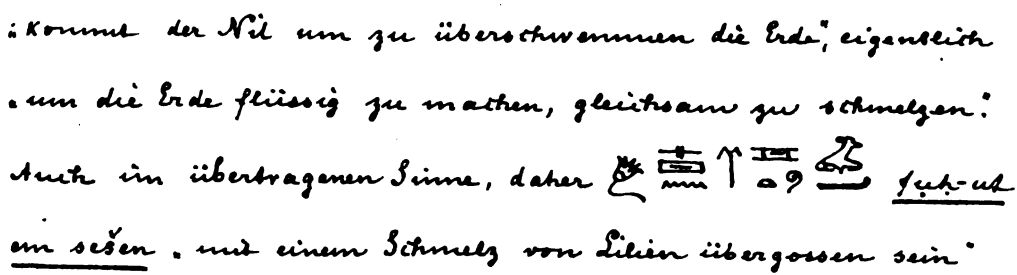 „kommt der Nil um zu überschwemmen die Erde“, eigentlich
„um die Erde flüssig zu machen, gleichsam zu schmelzen.“
Auch im übertragenen Sinne, daher
em sešen „mit einem Schmelz von Lilien übergossen sein“